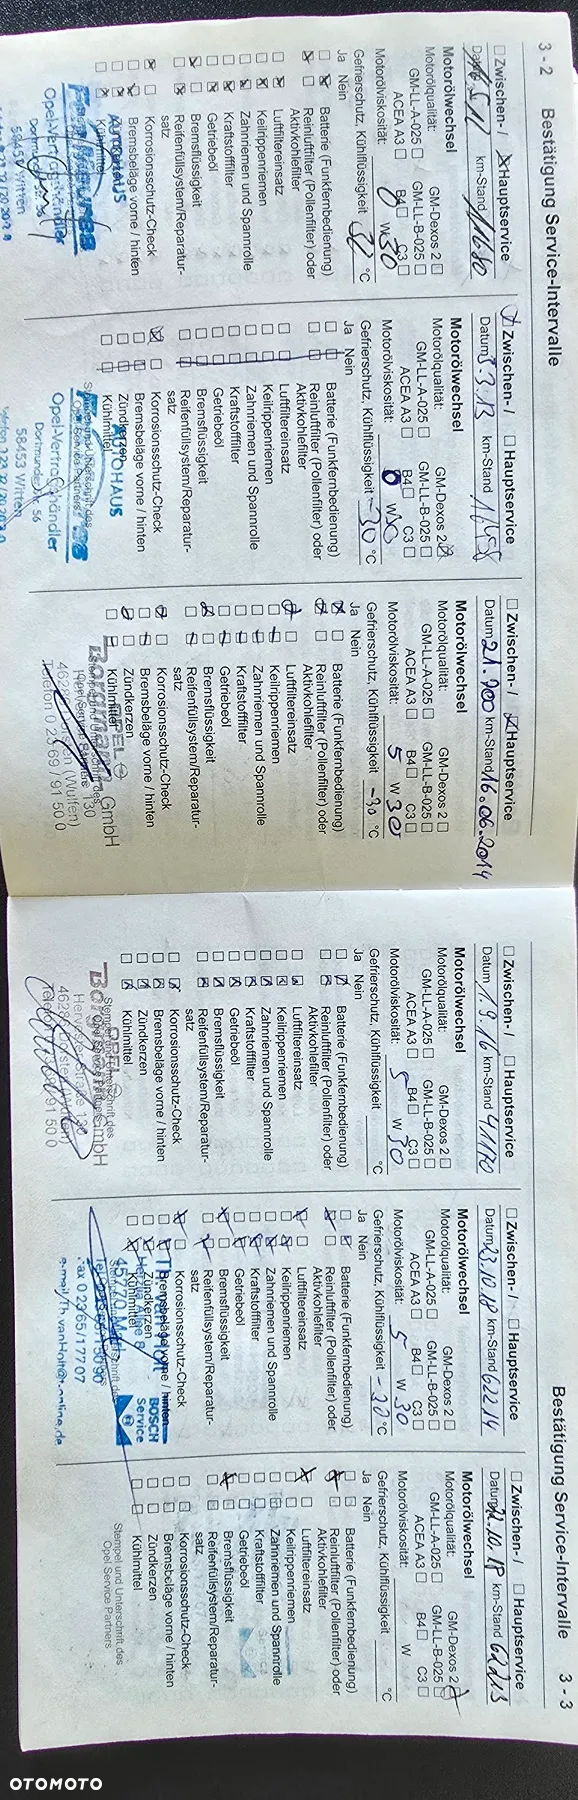 3 - 2 Bestätigung Service-Intervalle
☐ Zwischen- / ☒ Hauptservice
km-Stand 111680
Motorölwechsel
Motorölqualität: GM-Dexos 2 ☐
GM-LL-A-025 ☐ GM-LL-B-025 ☐
ACEA A3 ☐ B4 ☐ C3 ☐
Motorölviskosität: 0 W 30
Gefrierschutz, Kühlflüssigkeit °C
Ja Nein
Batterie (Funkfernbedienung)
Reinluftfilter (Pollenfilter) oder
Aktivkohlefilter
Luftfiltereinsatz
Keilrippenriemen
Zahnriemen und Spannrolle
Kraftstofffilter
Getriebeöl
Bremsflüssigkeit
Reifenfüllsystem/Reparatur-
satz
Korrosionsschutz-Check
Bremsbeläge vorne / hinten
Zündkerzen
Kühlmittel
AUTOHAUS
Opel-Vertragshändler
58453 Witten
☒ Zwischen- / ☐ Hauptservice
Datum 5.3.13 km-Stand
Motorölwechsel
Motorölqualität: GM-Dexos 2 ☒
GM-LL-A-025 ☐ GM-LL-B-025 ☐
ACEA A3 ☐ B4 ☐ C3 ☐
Motorölviskosität: 0 W 30
Gefrierschutz, Kühlflüssigkeit -30 °C
Ja Nein
Batterie (Funkfernbedienung)
Reinluftfilter (Pollenfilter) oder
Aktivkohlefilter
Luftfiltereinsatz
Keilrippenriemen
Zahnriemen und Spannrolle
Kraftstofffilter
Getriebeöl
Bremsflüssigkeit
Reifenfüllsystem/Reparatur-
satz
Korrosionsschutz-Check
Bremsbeläge vorne / hinten
Zündkerzen
Kühlmittel
AUTOHAUS
Opel-Vertragshändler
Dortmunder Str. 56
58453 Witten
☐ Zwischen- / ☒ Hauptservice
Datum 21.900 km-Stand 16.06.2014
Motorölwechsel
Motorölqualität: GM-Dexos 2 ☐
GM-LL-A-025 ☐ GM-LL-B-025 ☐
ACEA A3 ☐ B4 ☐ C3 ☐
Motorölviskosität: 5 W 30
Gefrierschutz, Kühlflüssigkeit -30 °C
Ja Nein
Batterie (Funkfernbedienung)
Reinluftfilter (Pollenfilter) oder
Aktivkohlefilter
Luftfiltereinsatz
Keilrippenriemen
Zahnriemen und Spannrolle
Kraftstofffilter
Getriebeöl
Bremsflüssigkeit
Reifenfüllsystem/Reparatur-
satz
Korrosionsschutz-Check
Bremsbeläge vorne / hinten
Zündkerzen
Kühlmittel
OPEL
Borgmann GmbH
(Wulfen)
Telefon 0 23 69 / 91 50 0
Bestätigung Service-Intervalle 3 - 3
☐ Zwischen- / ☐ Hauptservice
Datum 1.9.16 km-Stand 41170
Motorölwechsel
Motorölqualität: GM-Dexos 2 ☐
GM-LL-A-025 ☐ GM-LL-B-025 ☐
ACEA A3 ☐ B4 ☐ C3 ☐
Motorölviskosität: 5 W 30
Gefrierschutz, Kühlflüssigkeit °C
Ja Nein
Batterie (Funkfernbedienung)
Reinluftfilter (Pollenfilter) oder
Aktivkohlefilter
Luftfiltereinsatz
Keilrippenriemen
Zahnriemen und Spannrolle
Kraftstofffilter
Getriebeöl
Bremsflüssigkeit
Reifenfüllsystem/Reparatur-
satz
Korrosionsschutz-Check
Bremsbeläge vorne / hinten
Zündkerzen
Kühlmittel
OPEL
Borgmann GmbH
☐ Zwischen- / ☐ Hauptservice
Datum 23.10.18 km-Stand 62214
Motorölwechsel
Motorölqualität: GM-Dexos 2 ☐
GM-LL-A-025 ☐ GM-LL-B-025 ☐
ACEA A3 ☐ B4 ☐ C3 ☐
Motorölviskosität: 5 W 30
Gefrierschutz, Kühlflüssigkeit °C
Ja Nein
Batterie (Funkfernbedienung)
Reinluftfilter (Pollenfilter) oder
Aktivkohlefilter
Luftfiltereinsatz
Keilrippenriemen
Zahnriemen und Spannrolle
Kraftstofffilter
Getriebeöl
Bremsflüssigkeit
Reifenfüllsystem/Reparatur-
satz
Korrosionsschutz-Check
Bremsbeläge vorne / hinten
Zündkerzen
Kühlmittel
BOSCH
Service
Fax 0 23 65 / 1 77 07
☐ Zwischen- / ☐ Hauptservice
Datum km-Stand 62213
Motorölwechsel
Motorölqualität: GM-Dexos 2
GM-LL-A-025 ☐ GM-LL-B-025 ☐
ACEA A3 ☐ B4 ☐ C3 ☐
Motorölviskosität: W
Gefrierschutz, Kühlflüssigkeit °C
Ja Nein
Batterie (Funkfernbedienung)
Reinluftfilter (Pollenfilter) oder
Aktivkohlefilter
Luftfiltereinsatz
Keilrippenriemen
Zahnriemen und Spannrolle
Kraftstofffilter
Getriebeöl
Bremsflüssigkeit
Reifenfüllsystem/Reparatur-
satz
Korrosionsschutz-Check
Bremsbeläge vorne / hinten
Zündkerzen
Kühlmittel
Stempel und Unterschrift des
Opel Service Partners
OTOMOTO